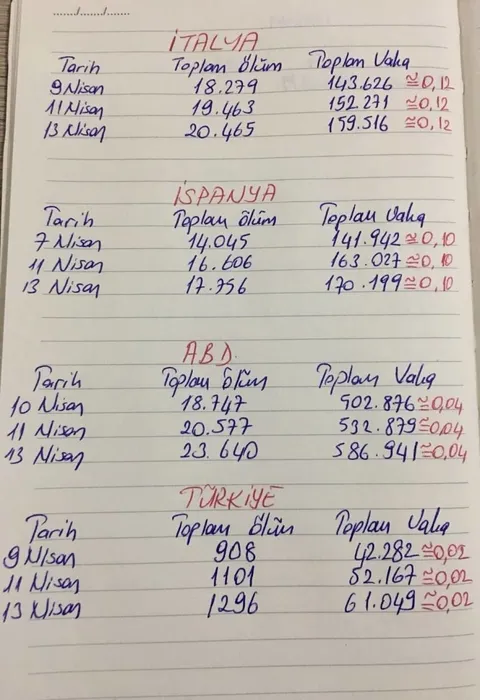 ....../....../......
İTALYA
Tarih Toplam ölüm Toplam Vaka
9 Nisan 18.279 143.626 ≅0,12
11 Nisan 19.463 152.271 ≅0,12
13 Nisan 20.465 159.516 ≅0,12
İSPANYA
Tarih Toplam ölüm Toplam Vaka
7 Nisan 14.045 141.942 ≅0,10
11 Nisan 16.606 163.027 ≅0,10
13 Nisan 17.756 170.199 ≅0,10
ABD.
Tarih Toplam ölüm Toplam Vaka
10 Nisan 18.747 502.876 ≅0,04
11 Nisan 20.577 532.879 ≅0,04
13 Nisan 23.640 586.941 ≅0,04
TÜRKİYE
Tarih Toplam ölüm Toplam Vaka
9 Nisan 908 42.282 ≅0,02
11 Nisan 1101 52.167 ≅0,02
13 Nisan 1296 61.049 ≅0,02